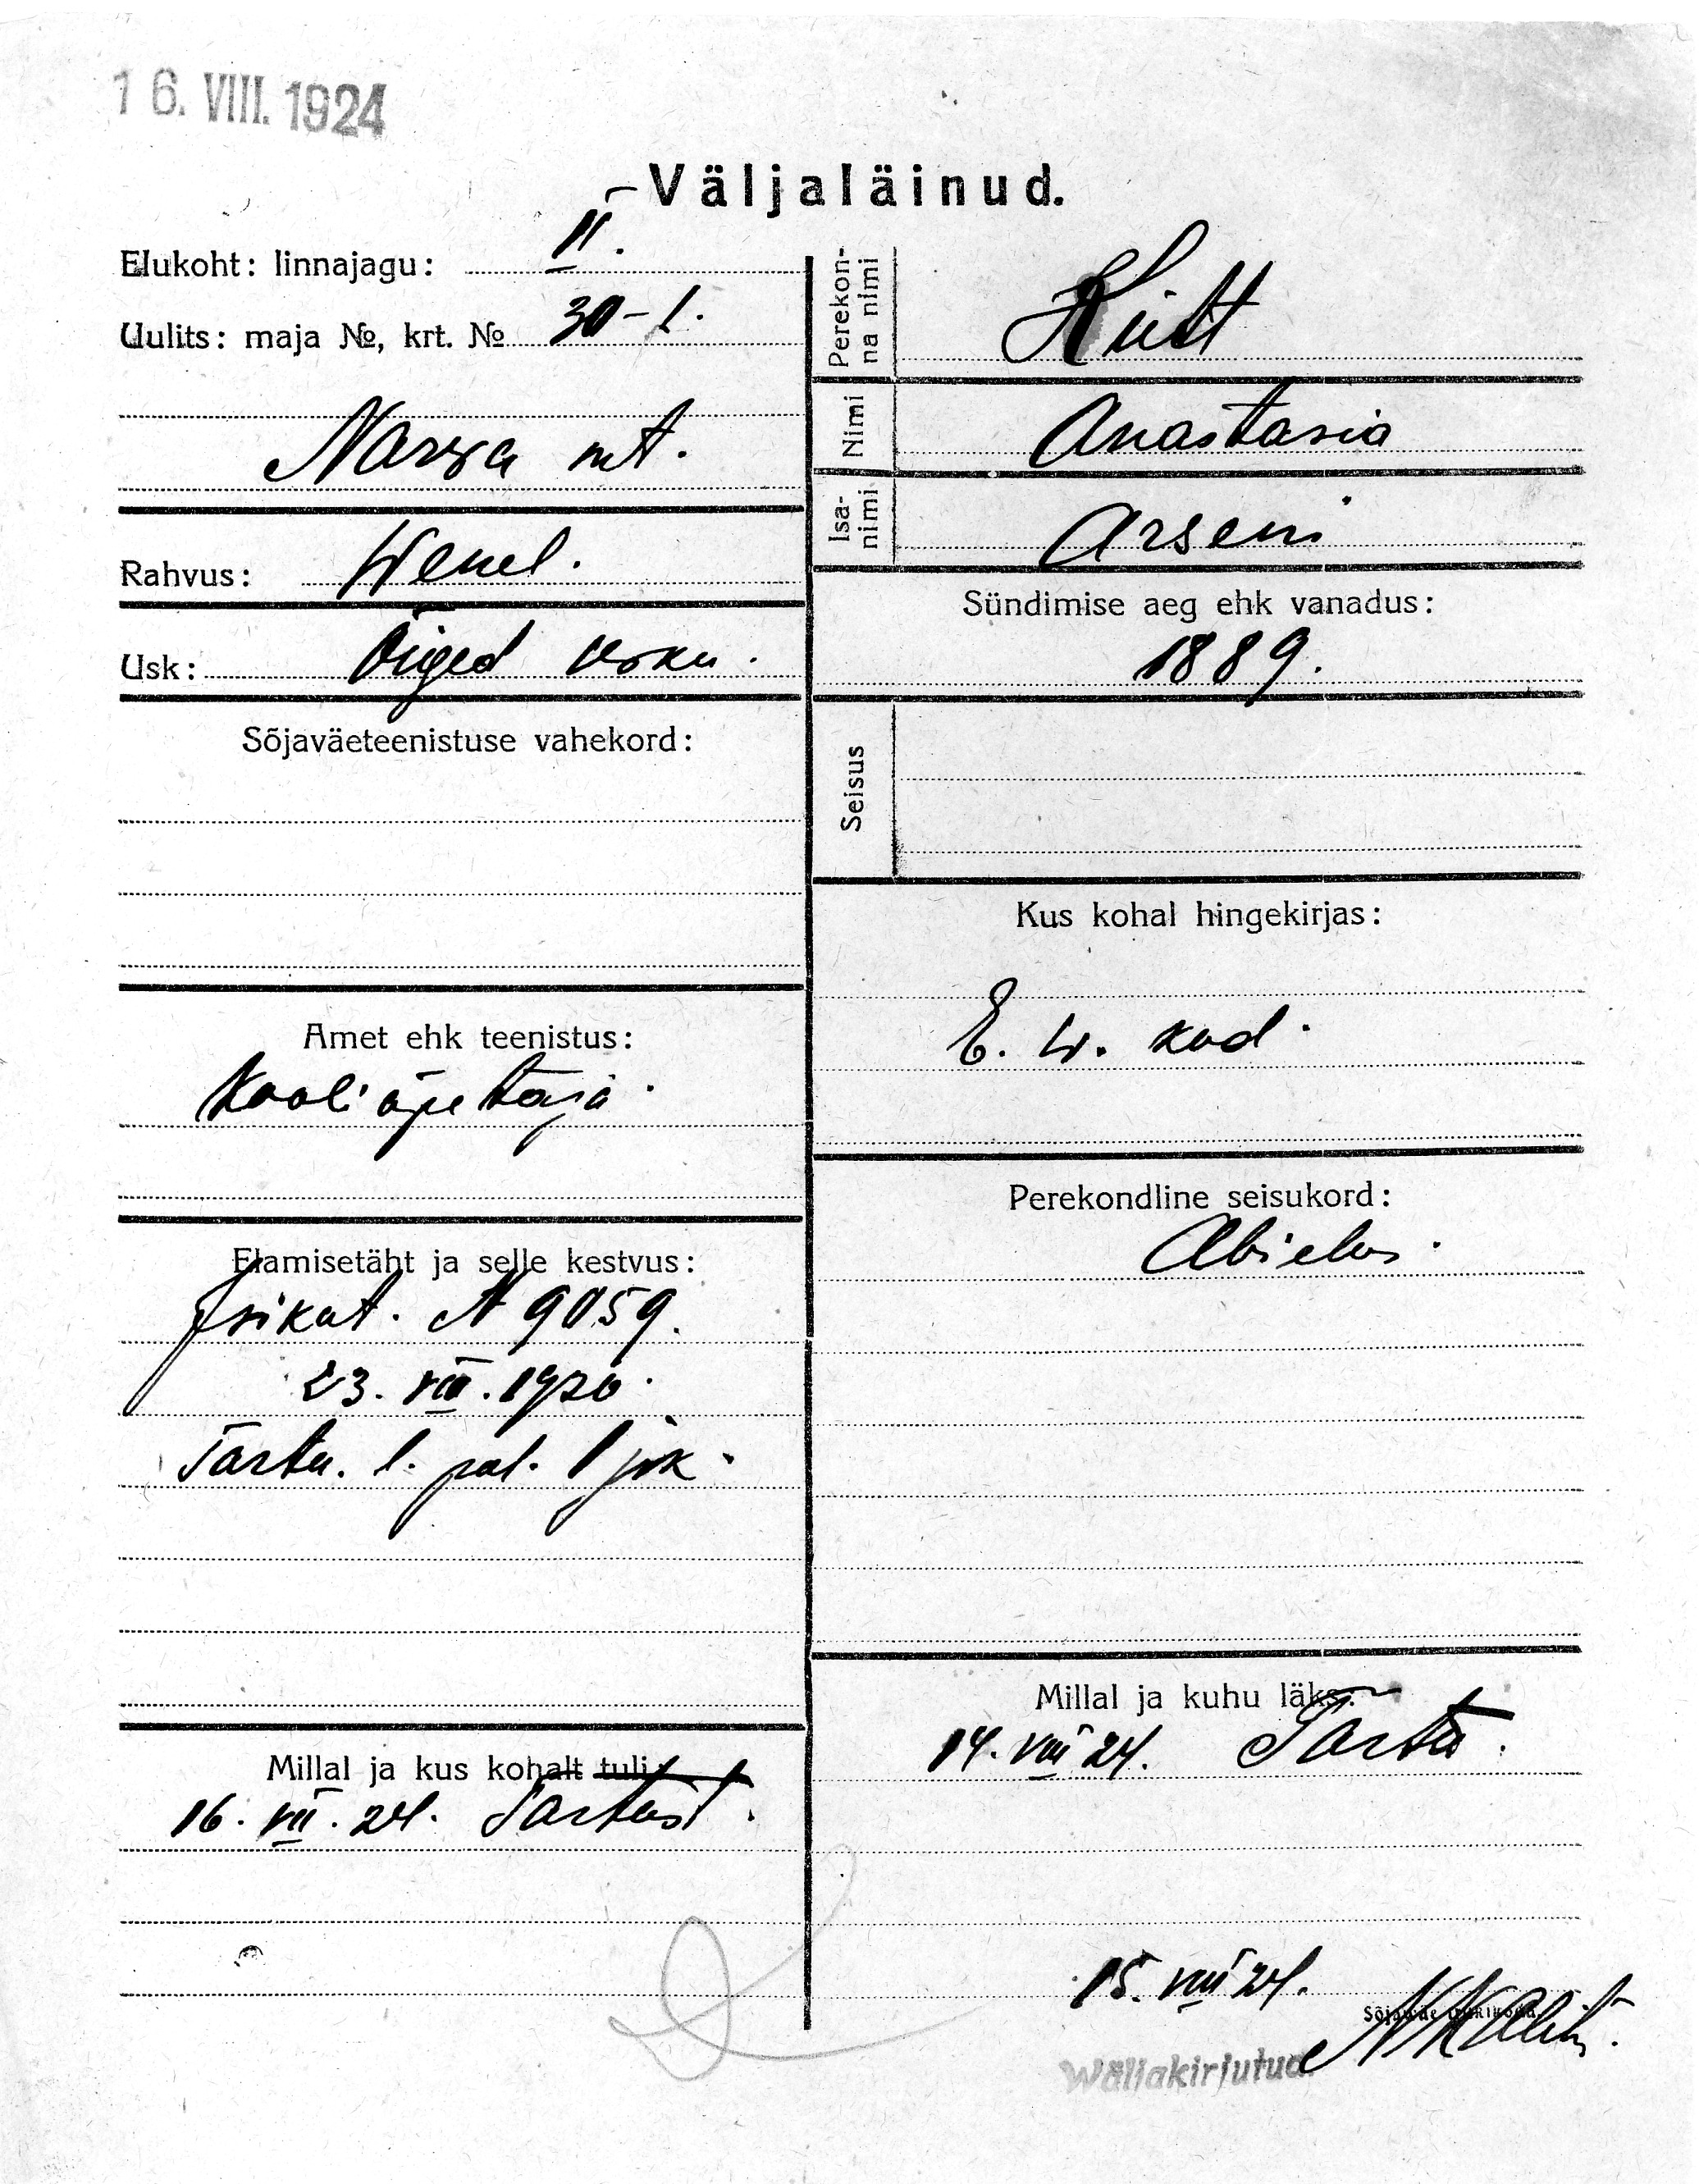 16. VIII. 1924
Väljaläinud.
Elukoht: linnajagu: II.
Uulits: maja №, krt. № 30-1.
Narva mt.
Rahvus: Wenel.
Usk: Õiged usku.
Sõjaväeteenistuse vahekord:
Amet ehk teenistus:
Kooli õpetaja.
Elamisetäht ja selle kestvus:
Isikut. N 9059.
23. VIII. 1920.
Tartu. l. pol. I jsk.
Millal ja kus kohalt tuli:
16. VII. 24. Tartust.
Perekonna nimi
Kütt
Nimi
Anastasia
Isanimi
Arseni
Sündimise aeg ehk vanadus:
1889.
Seisus
Kus kohal hingekirjas:
E. W. kod.
Perekondline seisukord:
Abielus.
Millal ja kuhu läks:
14. VIII 24. Tartu.
15. VIII 24.
Wäljakirjutud.